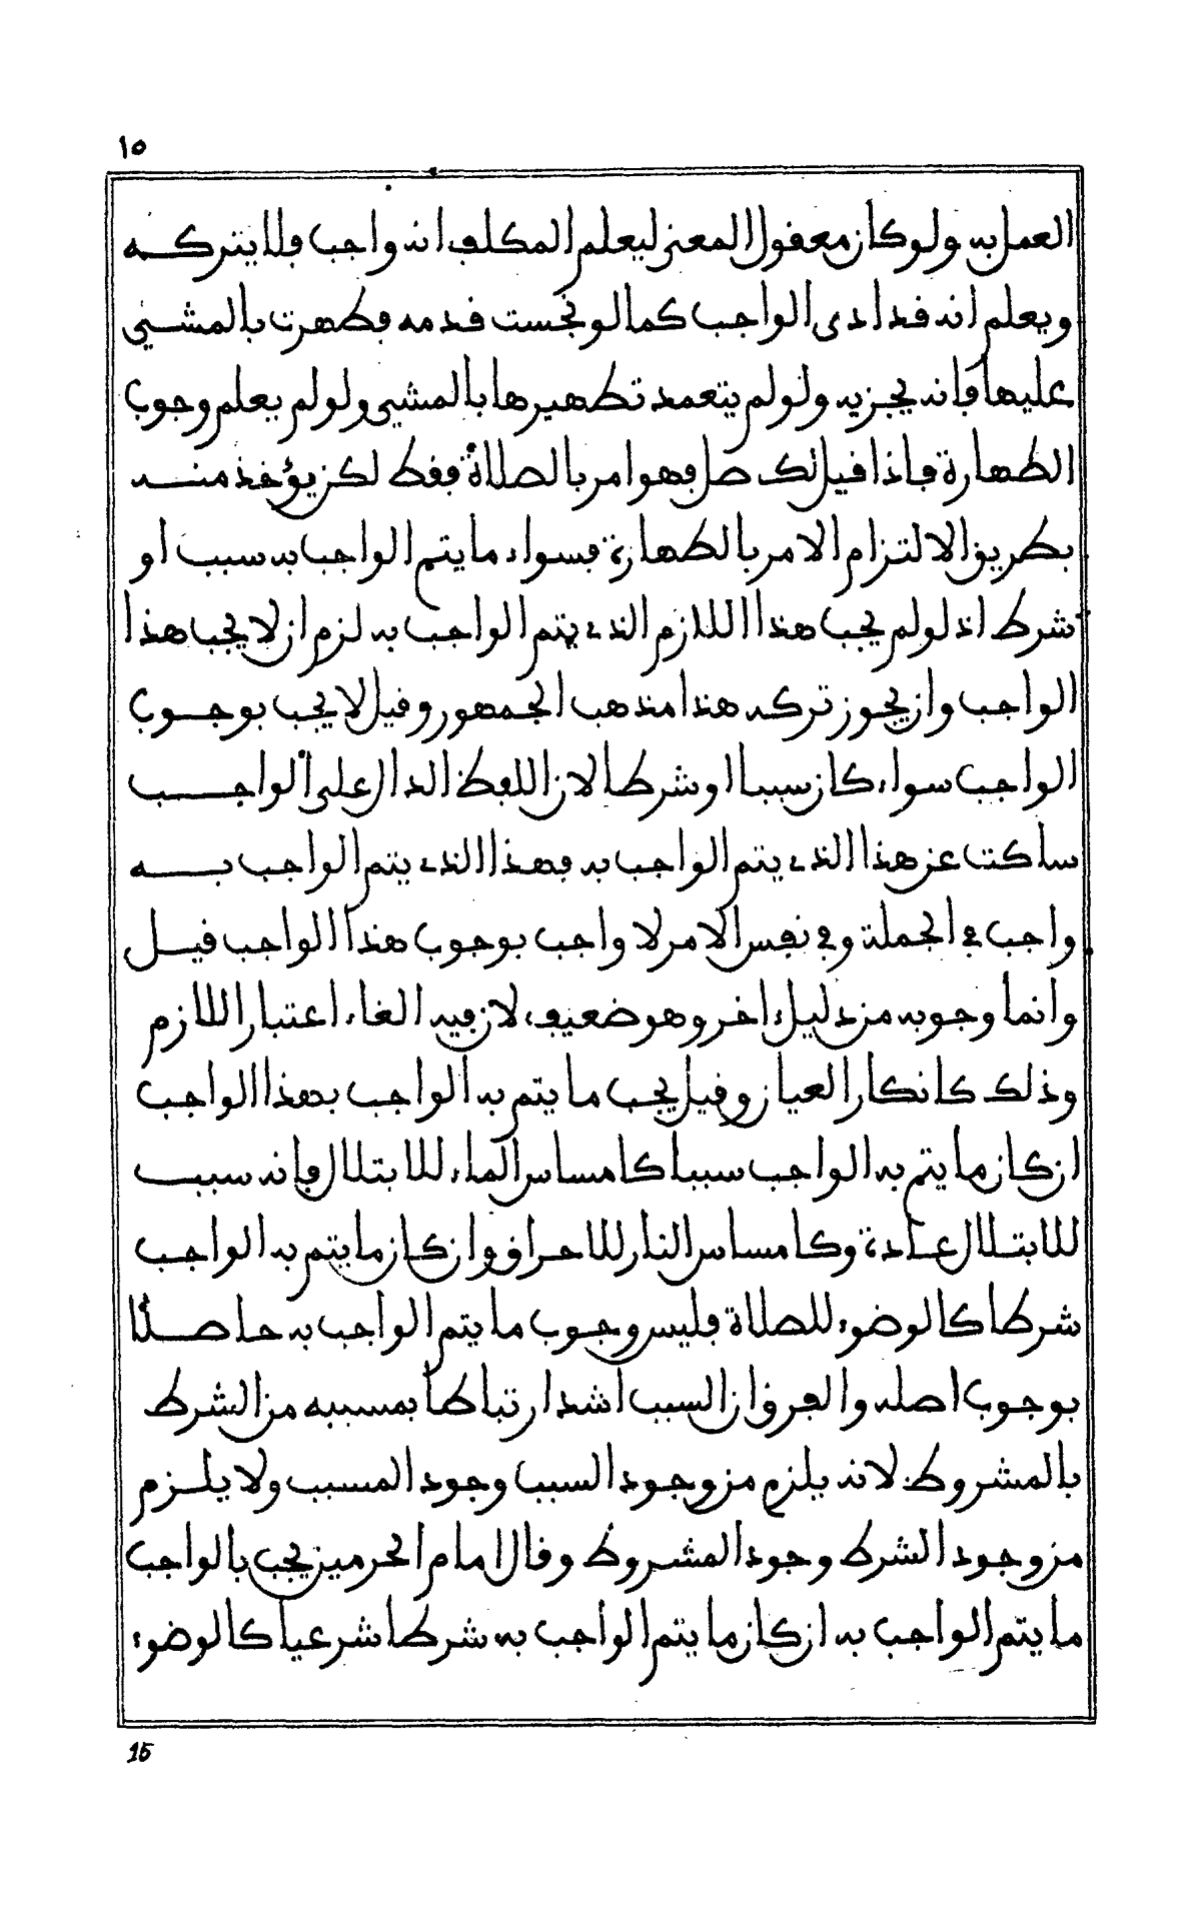 ١٥
العمل به ولو كان معقول المعنى ليعلم المكلف انه واجب فلا يتركه
ويعلم انه قد ادى الواجب كما لو نجست قدمه فطهرت بالمشي
عليها فانه يجزيه ولو لم يتعمد تطهيرها بالمشي ولو لم يعلم وجوب
الطهارة فاذا قيل لك صل فهو امر بالصلاة فقط لكن يؤخذ منه
بطريق الالتزام الامر بالطهارة فسواء ما يتم الواجب به سبب او
شرط اذ لو لم يجب هذا اللازم الذي يتم الواجب به لزم ان لا يجب هذا
الواجب وان يجوز تركه هذا مذهب الجمهور وقيل لا يجب بوجوب
الواجب سواء كان سببا او شرطا لان اللفظ الدال على الواجب
ساكت عن هذا الذي يتم الواجب به فهذا الذي يتم الواجب به
واجب في الجملة وفي نفس الامر لا واجب بوجوب هذا الواجب قيل
وانما وجوبه من دليل اخر وهو ضعيف لان فيه الغاء اعتبار اللازم
وذلك كانكار العيان وقيل يجب ما يتم به الواجب بهذا الواجب
ان كان ما يتم به الواجب سببا كامساس الماء للابتلال فانه سبب
للابتلال عادة وكامساس النار للاحراق وان كان ما يتم به الواجب
شرطا كالوضوء للصلاة فليس وجوب ما يتم الواجب به حاصلا
بوجوب اصله والفرق ان السبب اشد ارتباطا بمسببه من الشرط
بالمشروط لانه يلزم من وجود السبب وجود المسبب ولا يلزم
من وجود الشرط وجود المشروط وقال امام الحرمين يجب بالواجب
ما يتم الواجب به ان كان ما يتم الواجب به شرطا شرعيا كالوضوء
15